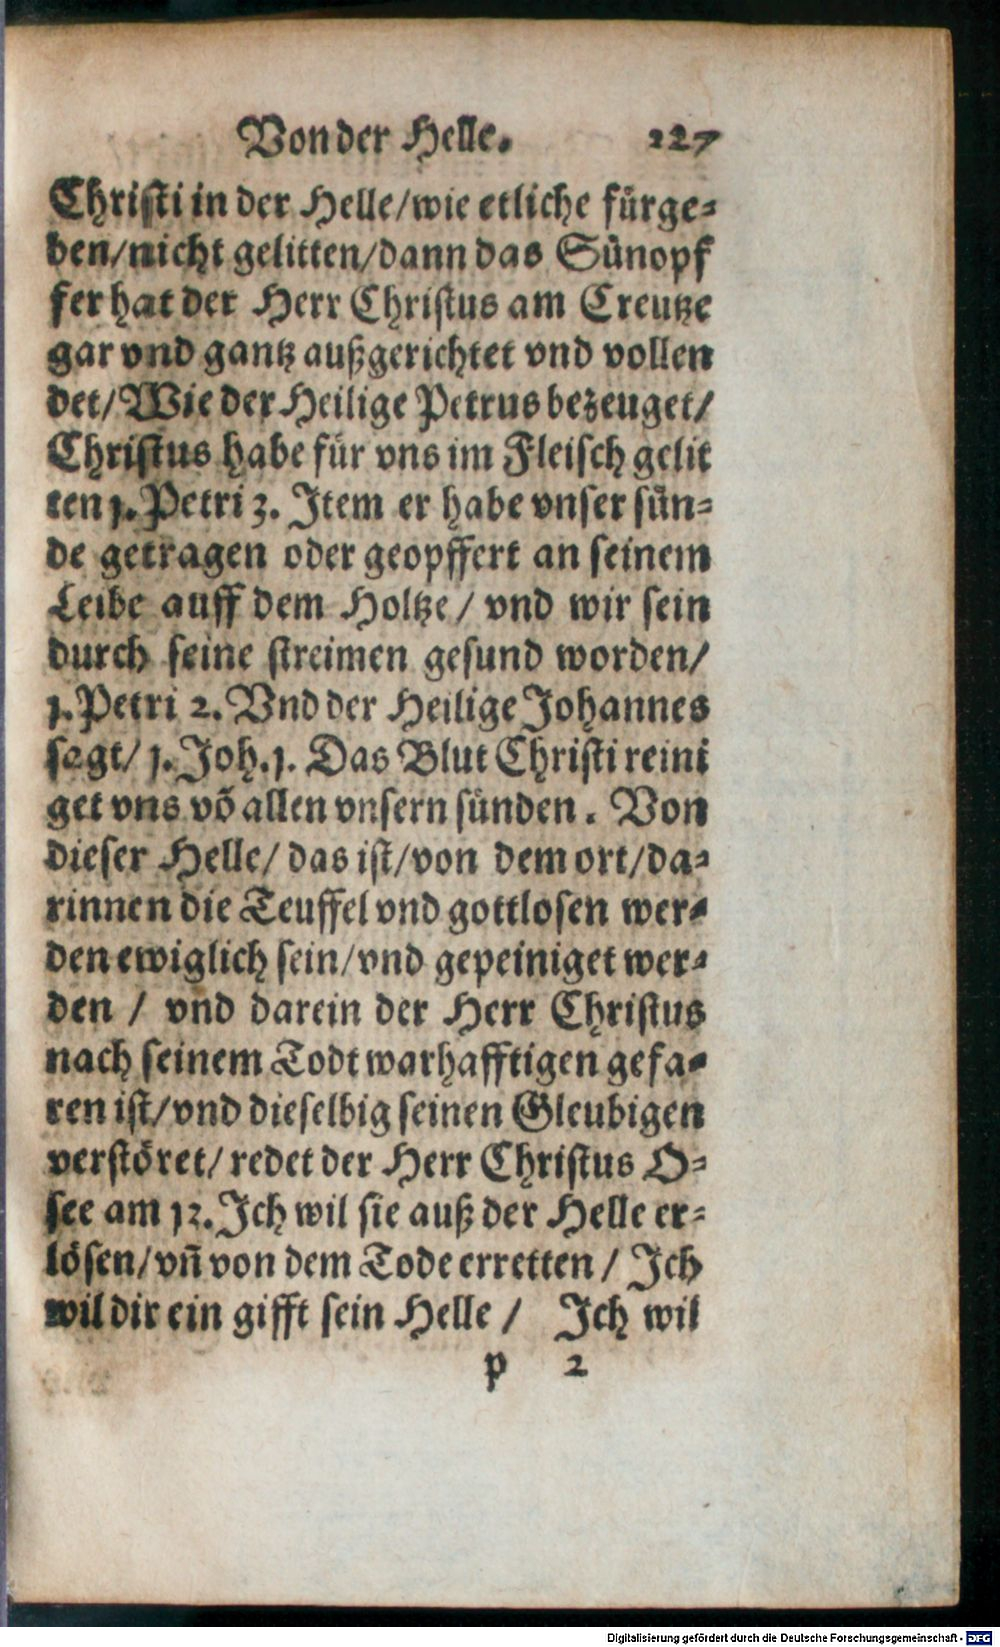 Von der Helle. 127
Christi in der Helle/wie etliche fürge⸗
ben/nicht gelitten/dann das Sünopf
fer hat der Herr Christus am Creutze
gar vnd gantz außgerichtet vnd vollen
det/Wie der Heilige Petrus bezeuget/
Christus habe für vns im Fleisch gelit
ten 1. Petri 3. Item er habe vnser sün⸗
de getragen oder geopffert an seinem
Leibe auff dem Holtze/ vnd wir sein
durch seine streimen gesund worden/
1. Petri 2. Vnd der Heilige Johannes
sagt/ 1. Joh. 1. Das Blut Christi reini
get vns võ allen vnsern sünden. Von
dieser Helle/ das ist/von dem ort/da⸗
rinnen die Teuffel vnd gottlosen wer⸗
den ewiglich sein/vnd gepeiniget wer⸗
den / vnd darein der Herr Christus
nach seinem Todt warhafftigen gefa⸗
ren ist/vnd dieselbig seinen Gleubigen
verstöret/ redet der Herr Christus O⸗
see am 12. Jch wil sie auß der Helle er⸗
lösen/vñ von dem Tode erretten / Jch
wil dir ein gifft sein Helle / Jch wil
p 2
Digitalisierung gefördert durch die Deutsche Forschungsgemeinschaft - DFG